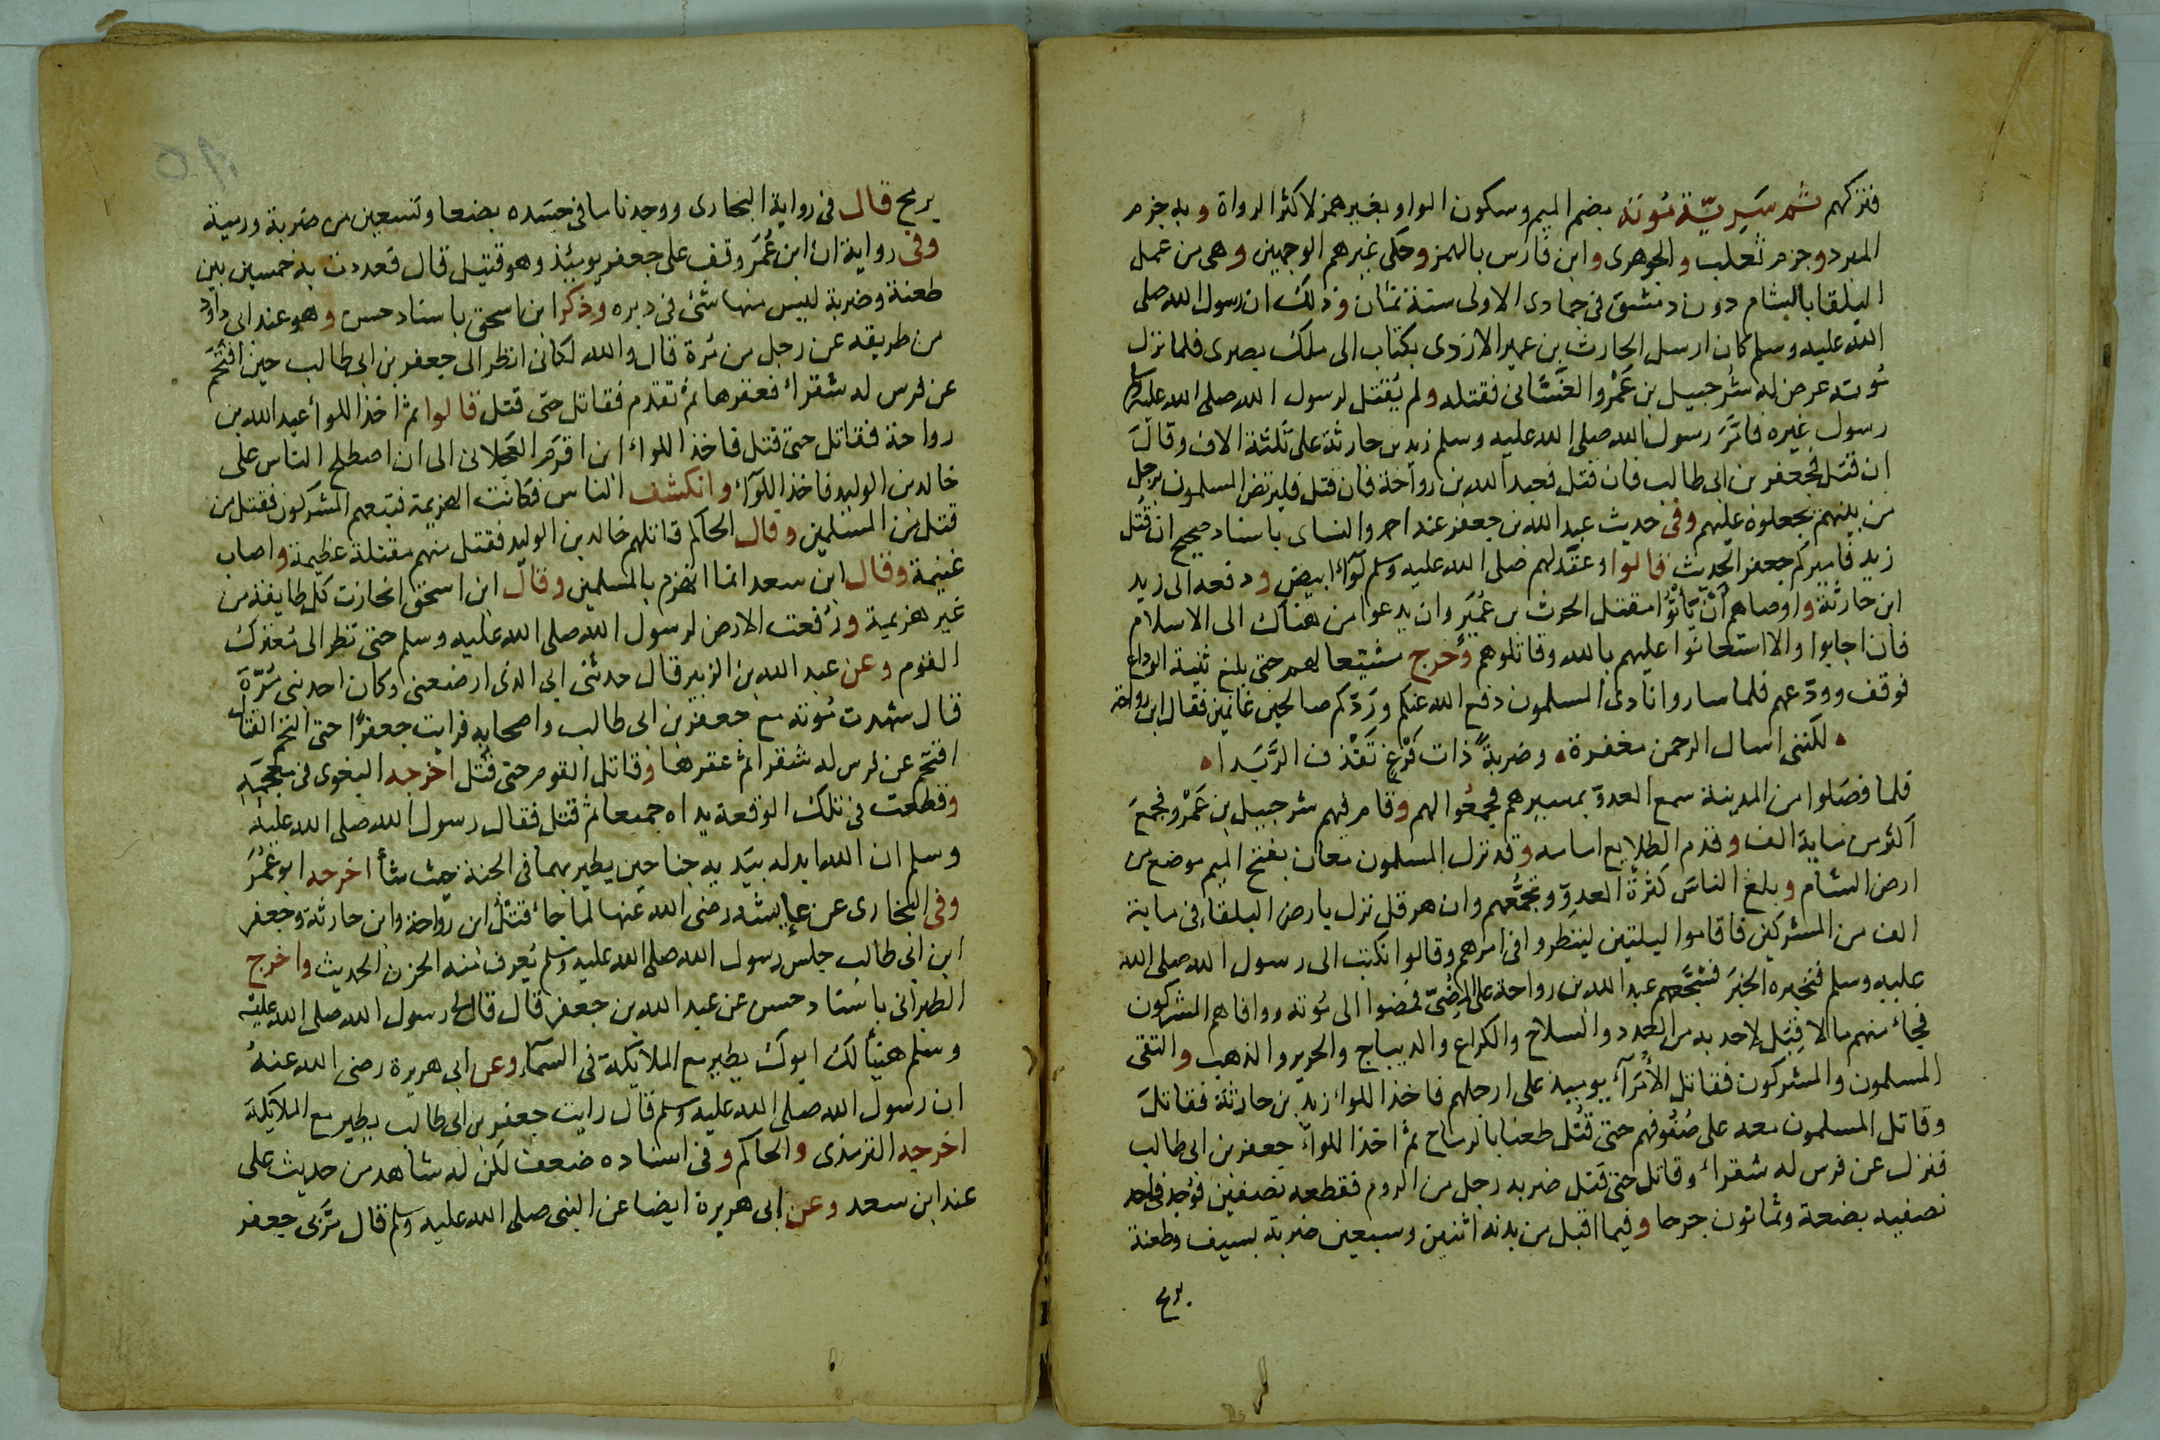 فتركهم ثم سَرِيّة مُوتة بضم الميم وسكون الواو بغير همز لاكثر الرواة وبه جزم
المبرد وجزم ثعلب والجوهرى وابن فارس بالهمز وحكى غيرهم الوجهين وهى من عمل
البلقا بالشام دون دمشق فى جمادى الاولى سنة ثمان وذلك ان رسول الله صلى
الله عليه وسلم كان ارسل الحارث بن عمير الازدى بكتاب الى ملك بصرى فلما نزل
مُوتة عرض له شُرحبيل بن عَمْرو الغسّانى فقتله ولم يُقتل لرسول الله صلى الله عليه وسلم
رسول غيره فامّرَ رسول الله صلى الله عليه وسلم زيد بن حارثة على ثلثة الاف وقال
ان قتل فجعفر بن ابى طالب فان قتل فعبد الله بن رواحة فان قتل فليرتض المسلمون برجل
من بينهم يجعلوه عليهم وفى حديث عبد الله بن جعفر عند احمد والنساى باسناد صحيح ان قُتل
زيد فاميركم جعفر الحديث قالوا وعقد لهم صلى الله عليه وسلم لوآءا ابيض ودفعه الى زيد
ابن حارثة واوصاهم أنْ يَأتُوا مقتل الحرث بن عُمَير وان يدعوا من هناك الى الاسلام
فان اجابوا والا استعانوا عليهم بالله وقاتلوهم وخرج مشيّعا لهم حتى بلغ ثنية الوداع
فوقف وودّعهم فلما ساروا نادى المسلمون دفع الله عنكم ورَدّكم صالحين غانمين فقال ابن رواحة
لكننى اسال الرحمن مغفرة وضربةً ذات فَرْغٍ تَقْذف الزَّبَدا
فلما فصَلوا من المدينة سمع العدوّ بمسيرهم فجمعُوا لهم وقام فيهم شرحبيل بن عَمْرو فجمع
اكثر من ماية الف وقدم الطلايع امامه وقد نزل المسلمون معان بفتح الميم موضع من
ارض الشام وبلغ الناسَ كثرةُ العدوِّ وتجمُّعهم وان هرقل نزل بارض البلقاء فى ماية
الف من المشركين فاقاموا ليلتين لينظروا فى امرهم وقالوا نكتب الى رسول الله صلى الله
عليه وسلم فنخبره الخبَر فشجَّعهم عبد الله بن رواحة على المُضىّ فمضوا الى مُوتة ووافاهم المشركون
فجاء منهم ما لا قِبَل لاحد به من العدد والسلاح والكراع والديباج والحرير والذهب والتقى
المسلمون والمشركون فقاتل الأُمَرآء يوميذ على ارجلهم فاخذ اللواء زيد بن حارثة فقاتل
وقاتل المسلمون معه على صُفُوفهم حتى قُتل طعنا بالرماح ثم اخذ اللواءَ جعفر بن ابى طالب
فنزل عن فرس له شقراء وقاتل حتى قتل ضربه رجل من الروم فقطعه نصفين فوُجد فى احد
نصفيه بضعة وثمانون جرحا وفيما اقبل من بدنه اثنين وسبعين ضربة بسيف وطعنة
برمح
برمح قال فى رواية البخارى ووجدنا ما فى جسَده بضعا وتسعين من ضربة ورمية
وفى رواية ان ابن عُمَر وقف على جعفر يوميئذ وهو قتيل قال فعددت به خمسين بين
طعنة وضربة ليس منها شئ فى دبره وذكر ابن اسحق باسناد حسن وهو عند ابى داود
من طريقه عن رجل من مُرة قال والله لكانى انظر الى جعفر بن ابى طالب حين اقتحَم
عن فرس له شقراء فعقرها ثم تقدم فقاتل حتى قتل قالوا ثم اخذ اللواء عبد الله بن
رواحة فقاتل حتى قتل فاخذ اللواء ابن اقرم العَجلانى الى ان اصطلح الناس على
خالد بن الوليد فاخذ اللوآء وانكشف الناس فكانت الهزيمة فتبعهم المشركون فقتل من
قتل من المسلمين وقال الحاكم قاتلهم خالد بن الوليد فقتل منهم مقتلة عظيمة واصاب
غنيمة وقال ابن سعد انما انهزم بالمسلمين وقال ابن اسحق انحازت كل طايفة من
غير هزيمة ورُفعت الارض لرسول الله صلى الله عليه وسلم حتى نظر الى مُعترك
القوم وعن عبد الله بن الزبير قال حدثنى ابى الذى ارضعنى وكان احد بنى مُرّة
قال شهدت مُوتة مع جعفر بن ابى طالب واصحابه فرايت جعفرًا حتى التحم القتال
اقتحم عن فرس له شقرا ثم عقرها وقاتل القوم حتى قُتل اخرجه البغوى فى معجمه
وقطعت فى تلك الوقعة يداه جميعا ثم قتل فقال رسول الله صلى الله عليه
وسلم ان الله ابدله بيَديه جناحين يطير بهما فى الجنة حيث شاء اخرجه ابو عُمَر
وفى البخارى عن عايشة رضى الله عنها لما جاء قتْلُ ابن رواحة وابن حارثة وجعفر
ابن ابى طالب جلس رسول الله صلى الله عليه وسلم يُعرف منه الحزن الحديث واخرج
الطبرانى باسناد حسن عن عبد الله بن جعفر قال قال لى رسول الله صلى الله عليه
وسلم هنيأ لك ابوك يطير مع الملايكة فى السمآء وعن ابى هريرة رضى الله عنهُ
ان رسول الله صلى الله عليه وسلم قال رايت جعفر بن ابى طالب يطير مع الملايكة
اخرجه الترمذى والحاكم وفى اسناده ضعف لكن له شاهد من حديث على
عند ابن سعد وعن ابى هريرة ايضا عن النبى صلى الله عليه وسلم قال مَرّ بى جعفر